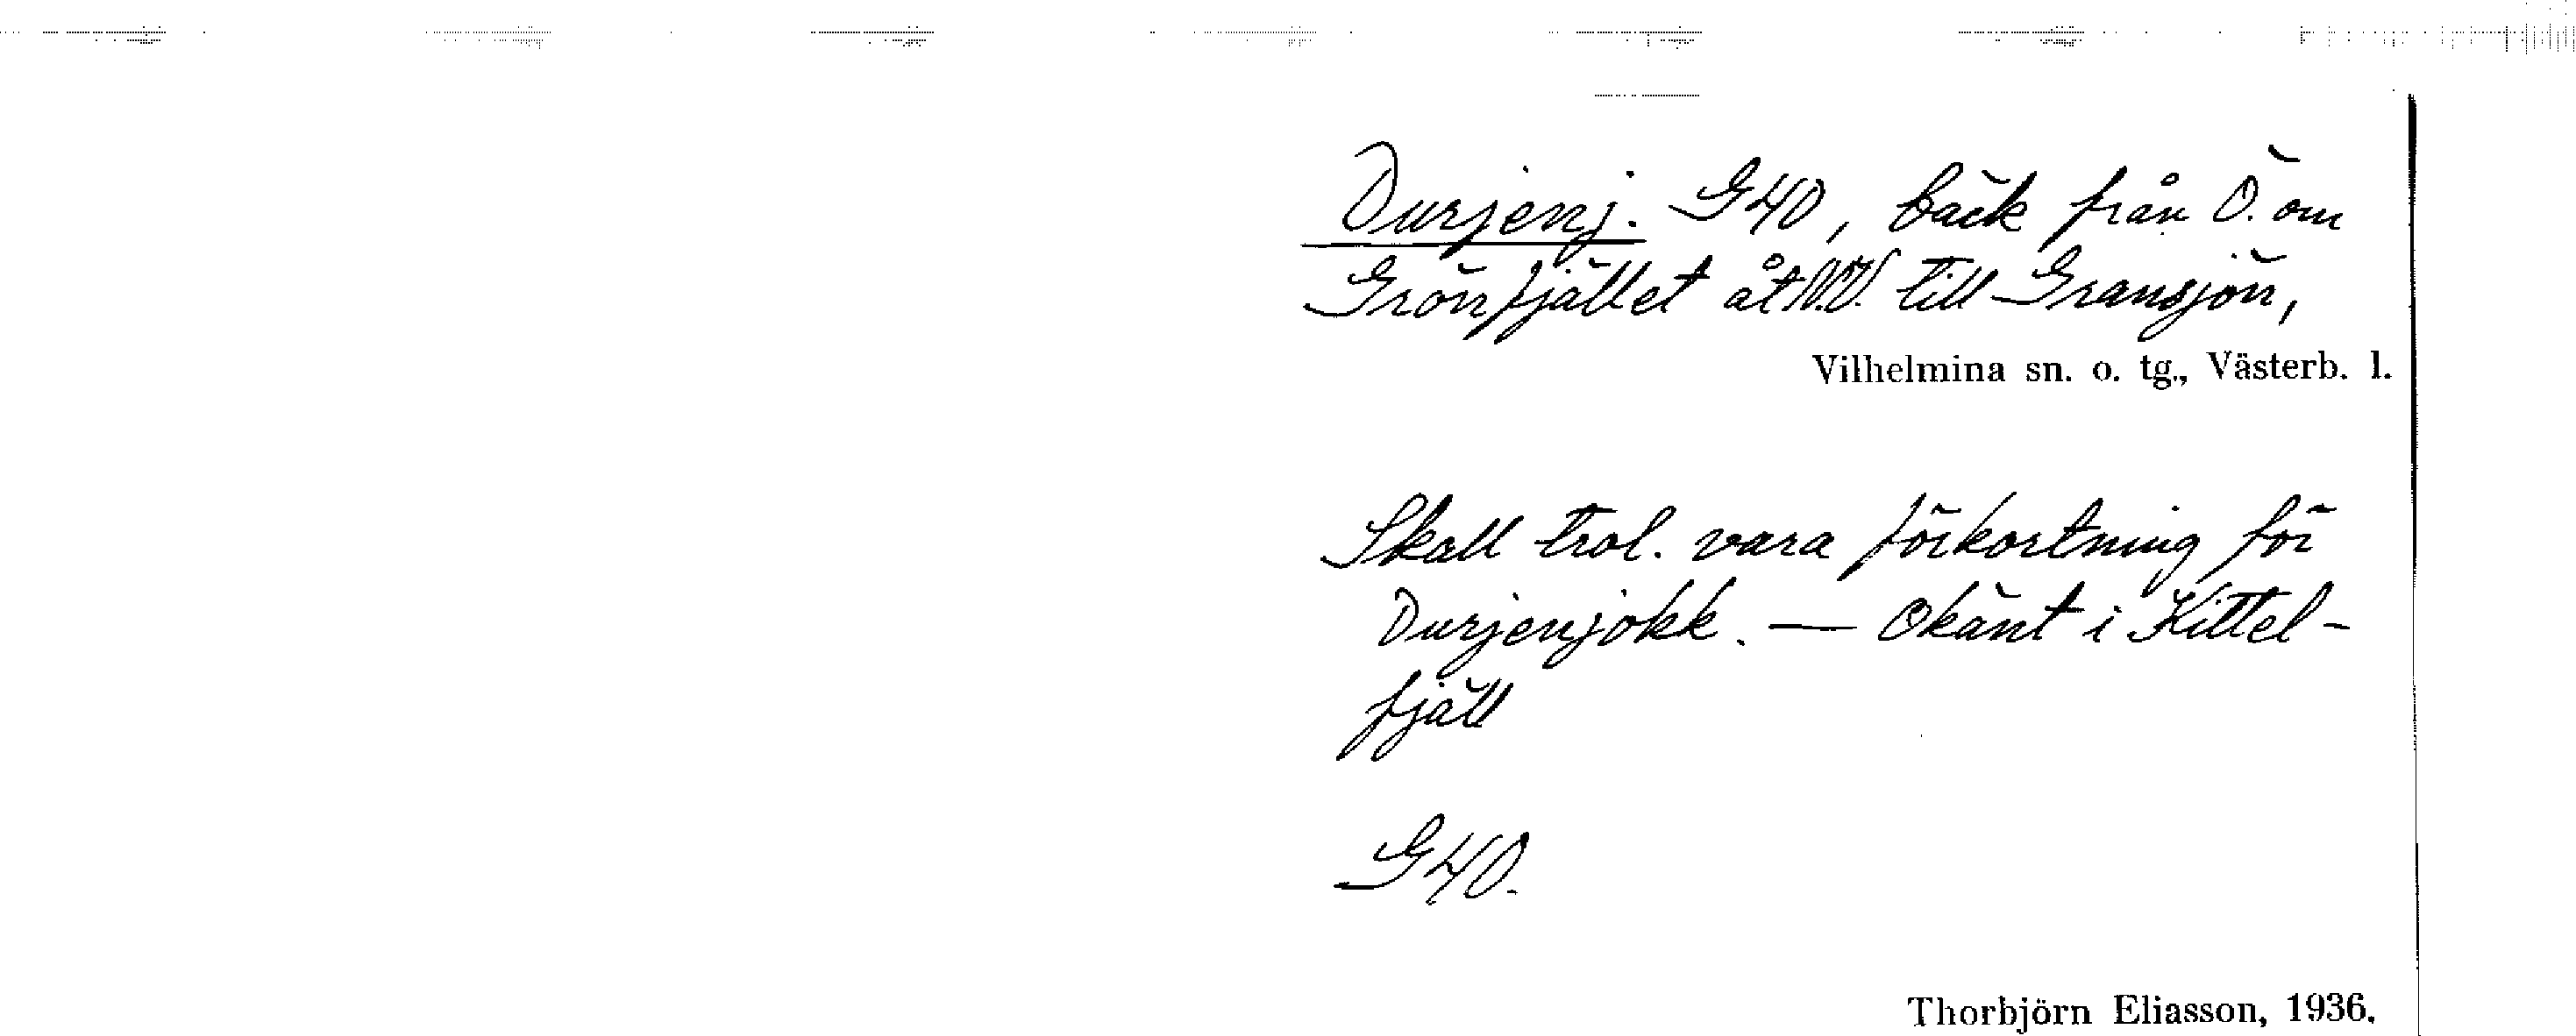 Durjenj. G40, bäck från Ö. om
Grönfjället åt N.V. till Gransjön,
Vilhelmina sn. o. tg., Västerb. l.
Skall trol. vara förkortning för
Durjenjokk. — Okänt i Kittel-
fjäll
G40.
Thorbjörn Eliasson, 1936.